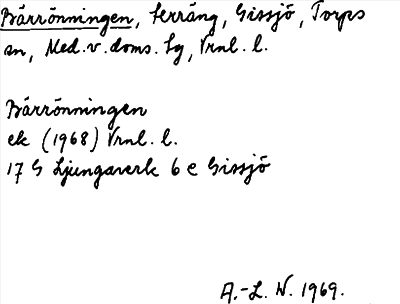 Bärrönningen, terräng, Gissjö, Torps
sn, Med. v. doms. lg, Vrnl. l.
Bärrönningen
ek (1968) Vrnl. l.
17 G Ljungaverk 6 e Gissjö
A.-L. N. 1969.